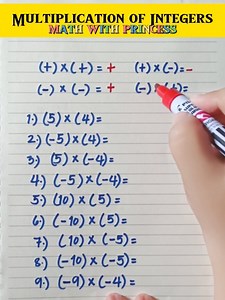 MULTIPLICATION OF INTEGERS
MATH WITH PRINCESS
(+) × (+) = + (+) × (-) = -
(-) × (-) = + (-) × (+) =
1.) (5) × (4) =
2.) (-5) × (4) =
3.) (5) × (-4) =
4.) (-5) × (-4) =
5.) (10) × (5) =
6.) (-10) × (5) =
7.) (10) × (-5) =
8.) (-10) × (-5) =
9.) (-9) × (-4) =